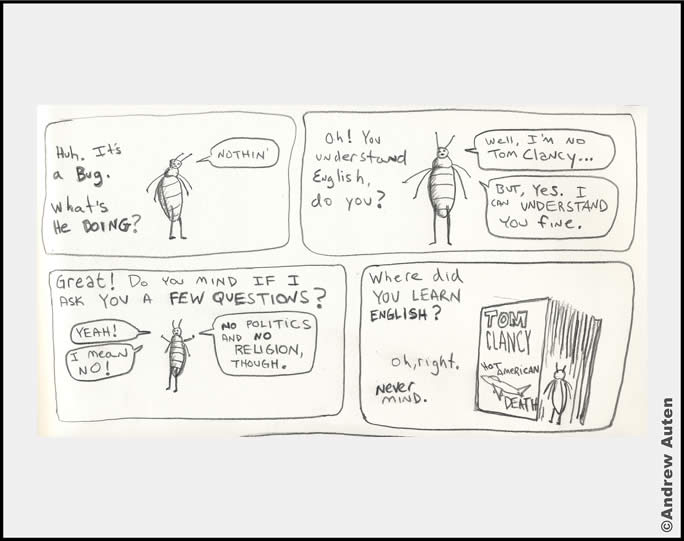 Huh. It's
a Bug.
What's
He DOING?
NOTHIN'
Oh! You
understand
English,
do you?
Well, I'm no
Tom Clancy...
BUT, Yes. I
CAN UNDERSTAND
YOU fine.
Great! Do You MIND IF I
ASK YOU A FEW QUESTIONS?
YEAH!
I mean
NO!
NO POLITICS
AND NO
RELIGION,
THOUGH.
Where did
YOU LEARN
ENGLISH?
Oh, right.
Never
MIND.
TOM
CLANCY
HOT AMERICAN
DEATH
©Andrew Auten